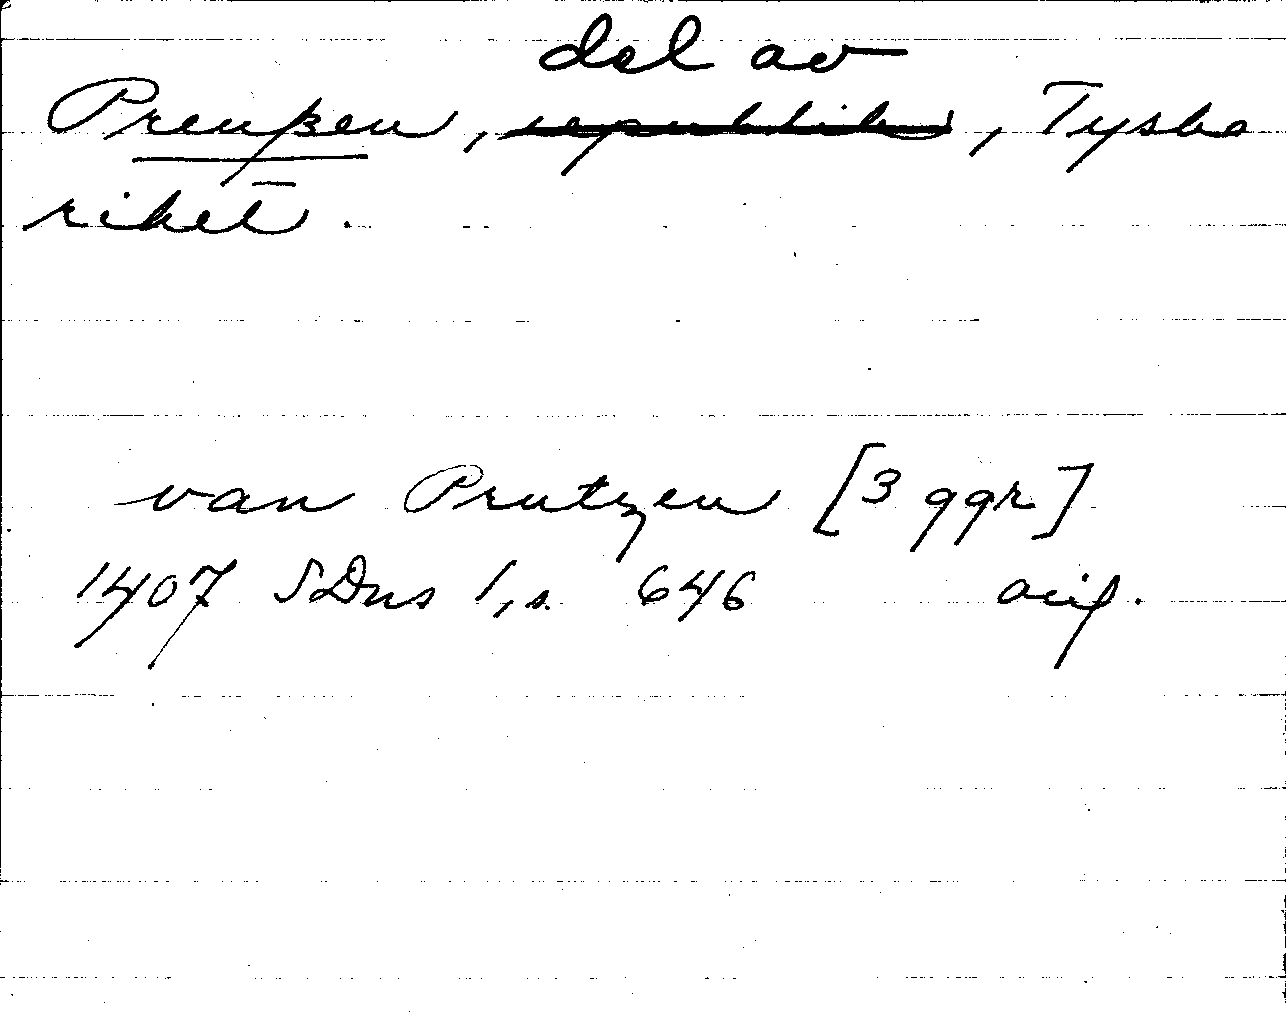 del av
Preußen, republiken, Tyska
riket.
van Prutzen [3 ggr]
1407 SDns 1, s. 646 avig.